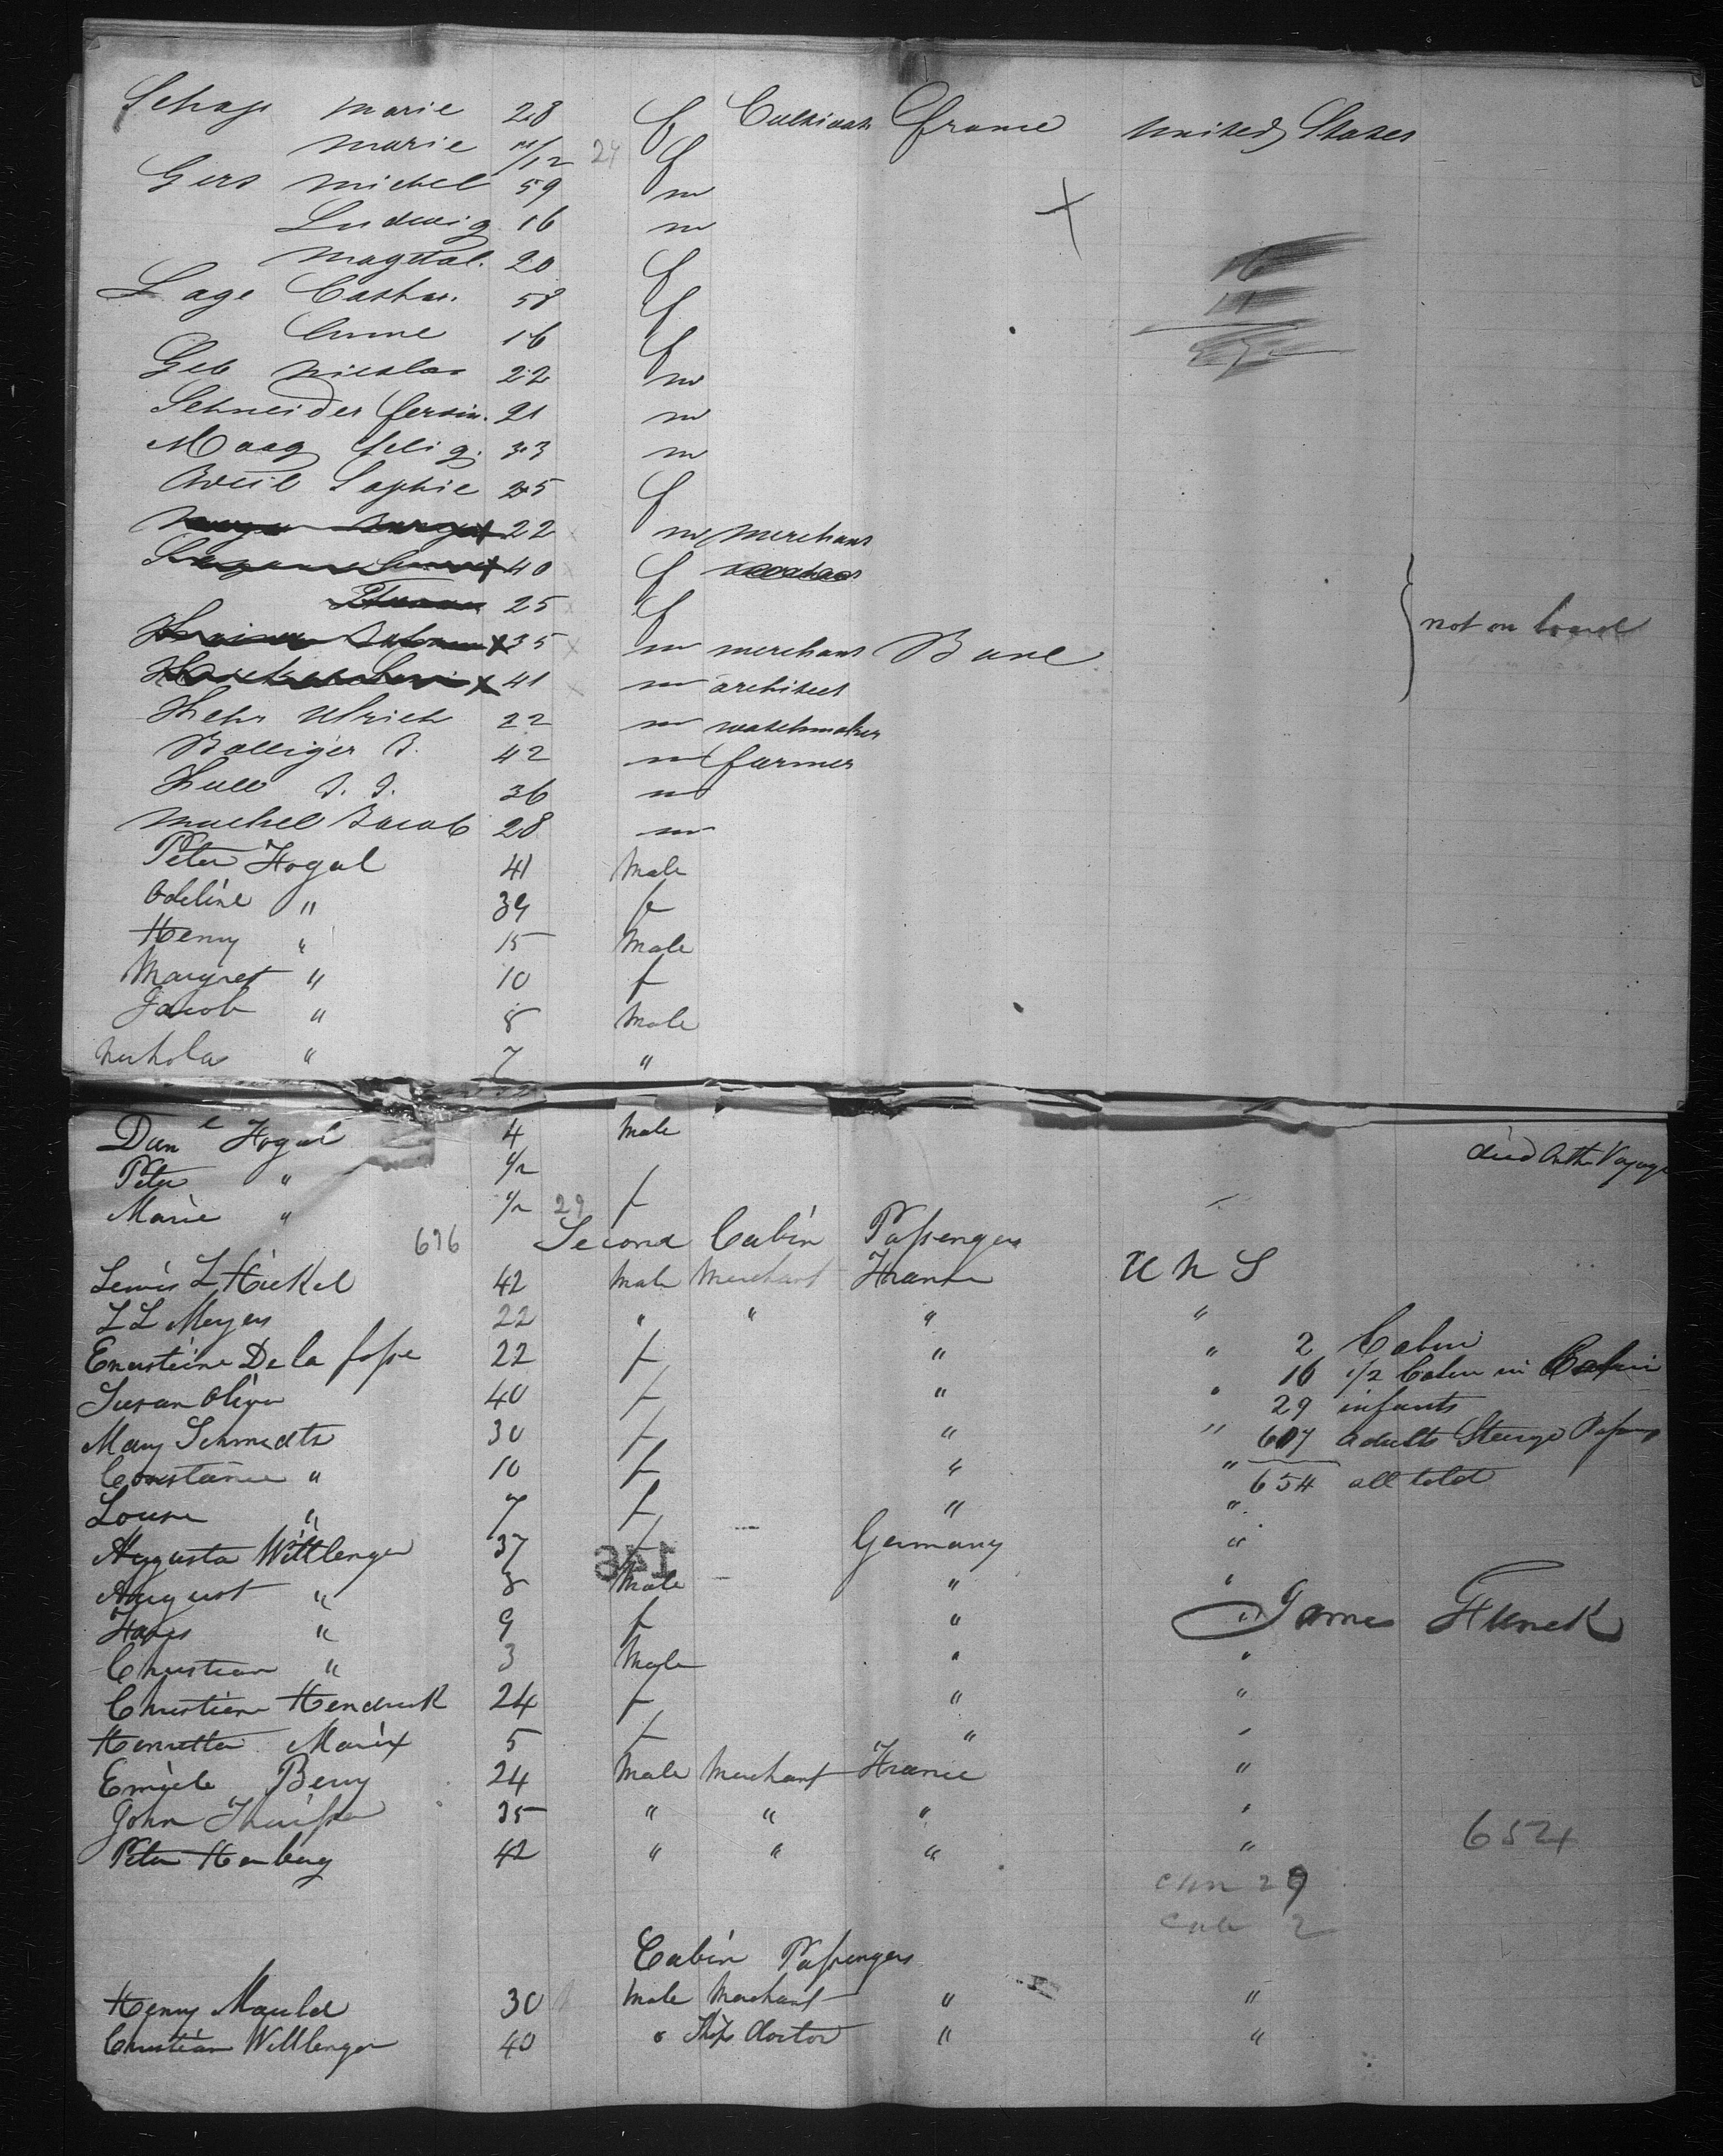 Schaps Marie 28 f Cultivat. France United States
Marie 11/12 24 f
Gers Michel 59 m
Ludwig 16 m
Magdal. 20 f
Lage Cathar. 58 f
Anne 16 f
Geb Nicolas 22 m
Schneider fersin. 21 m
Maag felig. 33 m
Weil Sophie 25 f
22 m merchant
40 f
25 f
not on board
35 m merchant Bane
41 m architect
Hehr Ulrich 22 m watchmaker
Bolliger J. 42 m farmer
J. J. 36 m
Muchel Jacob 28 m
Peter Hogal 41 Male
Odeline " 39 f
Henry " 15 Male
Margret " 10 f
Jacob " 8 Male
Nicholas " 7 "
Danl Hogal 4 Male
died on the Voyage
Peter " 1/2
Marie " 1/2 29 f
696 Second Cabin Passengers
Lewis L Hickel 42 Male Merchant France U N S
L L Meyers 22 " " " "
Ernestine De la fosse 22 f " " 2 Cabin
16 1/2 Cabin in Cabin
Susan Oliva 40 f " " 29 infants
Mary Schmedts 30 f " " 607 adults Steerge Passeng
Constance " 10 f " " 654 all told
Louise " 7 f " "
Augusta Wittlenger 37 f Germany "
146
August " 8 Male " "
" 9 f " " James Funck
Christian " 3 Male " "
Christiane Hendrick 24 f " "
Henrietta Marix 5 f " "
Emiele Berry 24 Male Merchant France "
John 35 " " " "
654
Peter Hamberg 42 " " " "
chn 29
cab 2
Cabin Passengers
Henry Mauld 30 Male Merchant " "
Christian Wittlenger 40 " Ships doctor " "